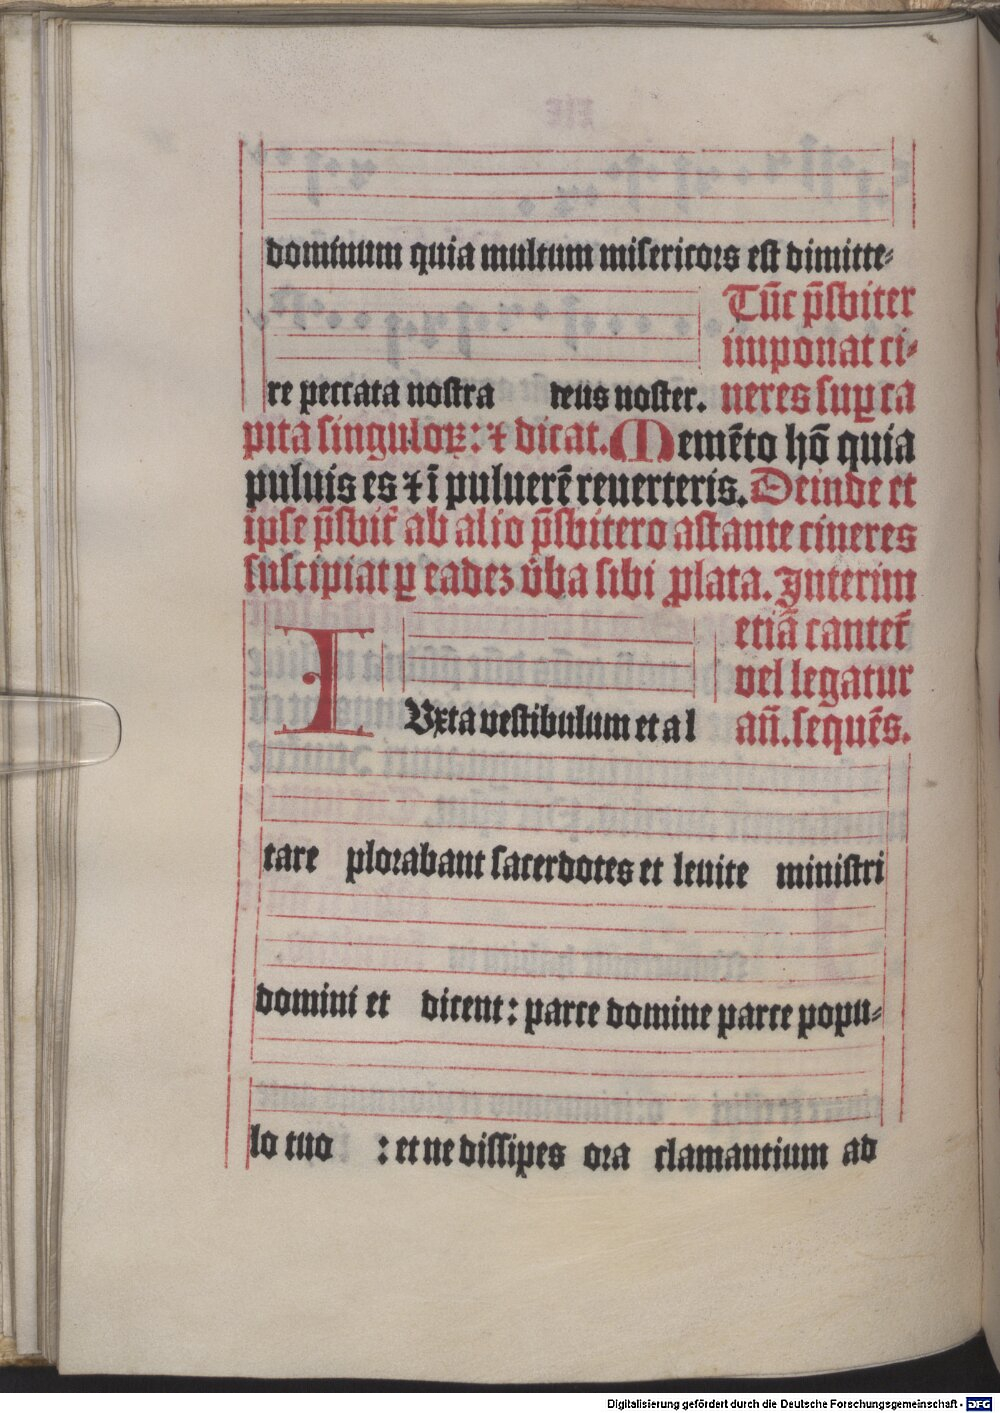 dominum quia multum misericors est dimitte⸗
Tūc p̄sbiter
imponat ci⸗
re peccata nostra deus noster. neres suꝑ ca
pita singuloꝝ: ⁊ dicat. Memēto hō quia
puluis es ⁊ ī puluerē reuerteris. Deinde et
ipse p̄sbit̄ ab alio p̄sbitero astante cineres
suscipiat ꝑ eadeꝫ v̄ba sibi ꝓlata. Interim
etiā cantet̄
vel legatur
IVxta vestibulum et al añ. sequēs.
tare plorabant sacerdotes et leuite ministri
domini et dicent: parce domine parce popu⸗
lo tuo : et ne dissipes ora clamantium ad
Digitalisierung gefördert durch die Deutsche Forschungsgemeinschaft - DFG